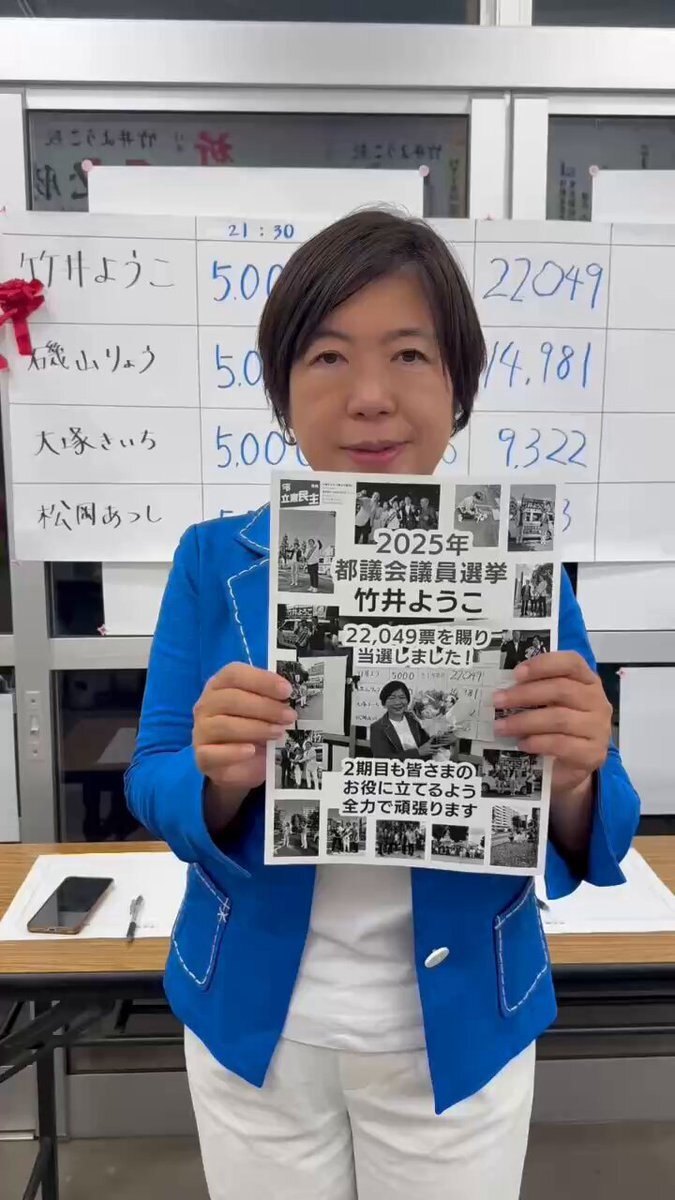 竹井ようこ
21:30
竹井ようこ
5.00
22049
磯山りょう
5.0
14,981
大塚さいち
5.000
9.322
松岡あつし
3
立憲民主
2025年
都議会議員選挙
竹井ようこ
22,049票を賜り
当選しました!
5000
22049
2期目も皆さまの
お役に立てるよう
全力で頑張ります